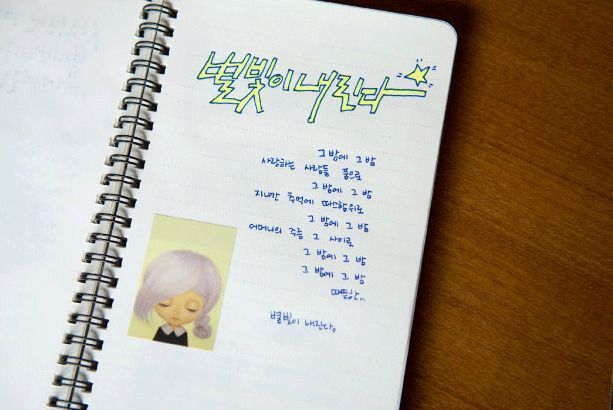 별빛이 내린다
그 밤에 그 밤
사랑하는 사람들 품으로
그 밤에 그 밤
지나간 추억에 따스함위로
그 밤에 그 밤
어머니의 주름 그 사이로
그 밤에 그 밤
그 밤에 그 밤
따뜻한
별빛이 내린다.